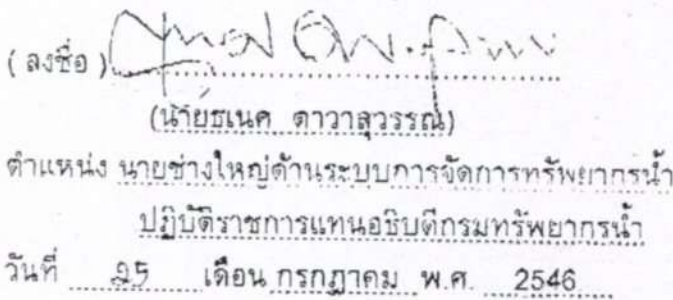 (ลงชื่อ)
(นายธเนศ ดาวาสุวรรณ์)
ตำแหน่ง นายช่างใหญ่ด้านระบบการจัดการทรัพยากรน้ำ
ปฏิบัติราชการแทนอธิบดีกรมทรัพยากรน้ำ
วันที่ 25 เดือน กรกฎาคม พ.ศ. 2546